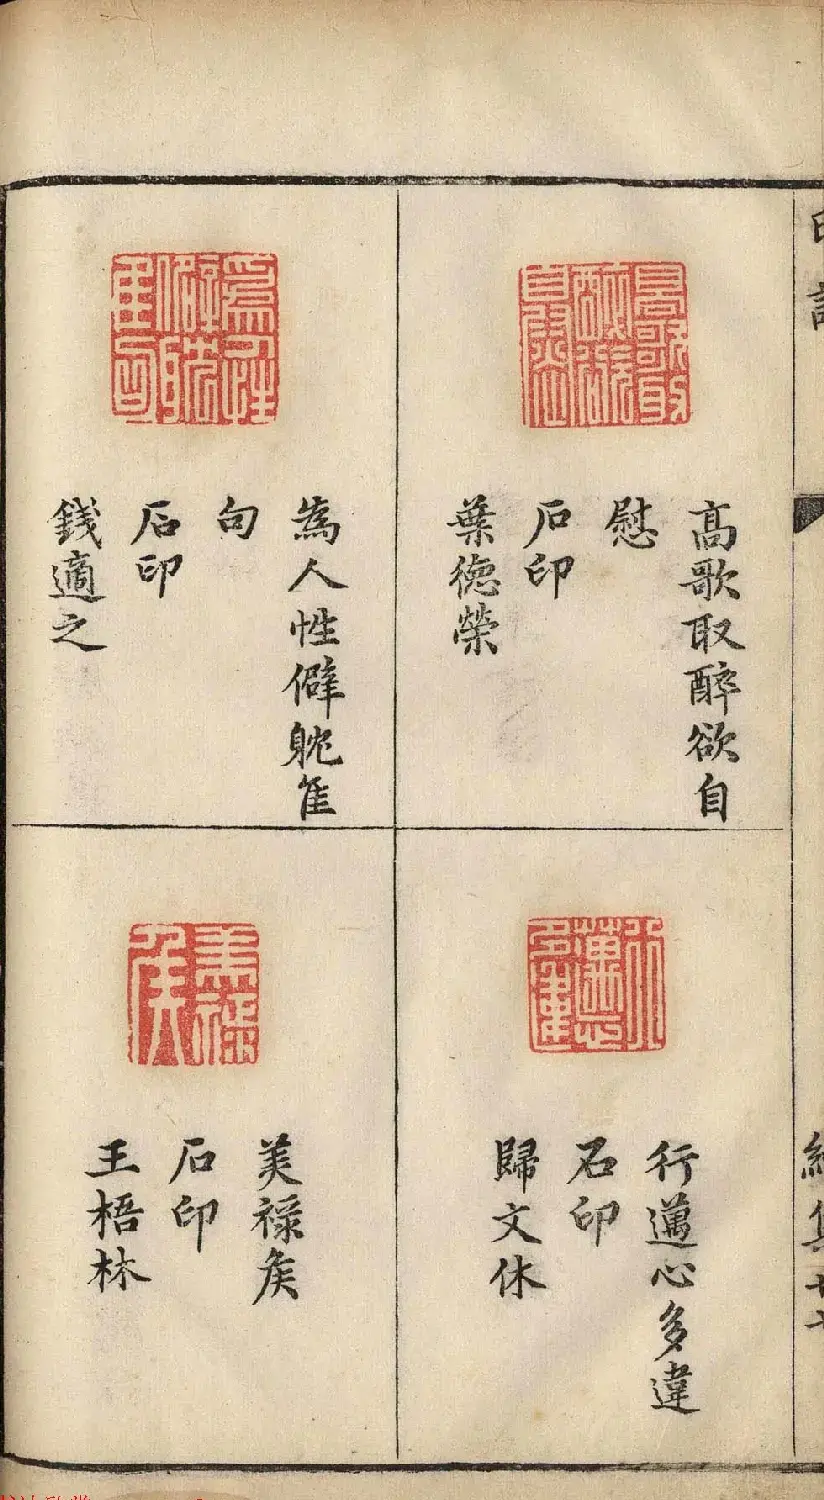 高歌取醉欲自
慰
石印
葉德榮
行邁心多違
石印
歸文休
為人性僻躭隹
句
石印
錢適之
美祿矦
石印
王梧林